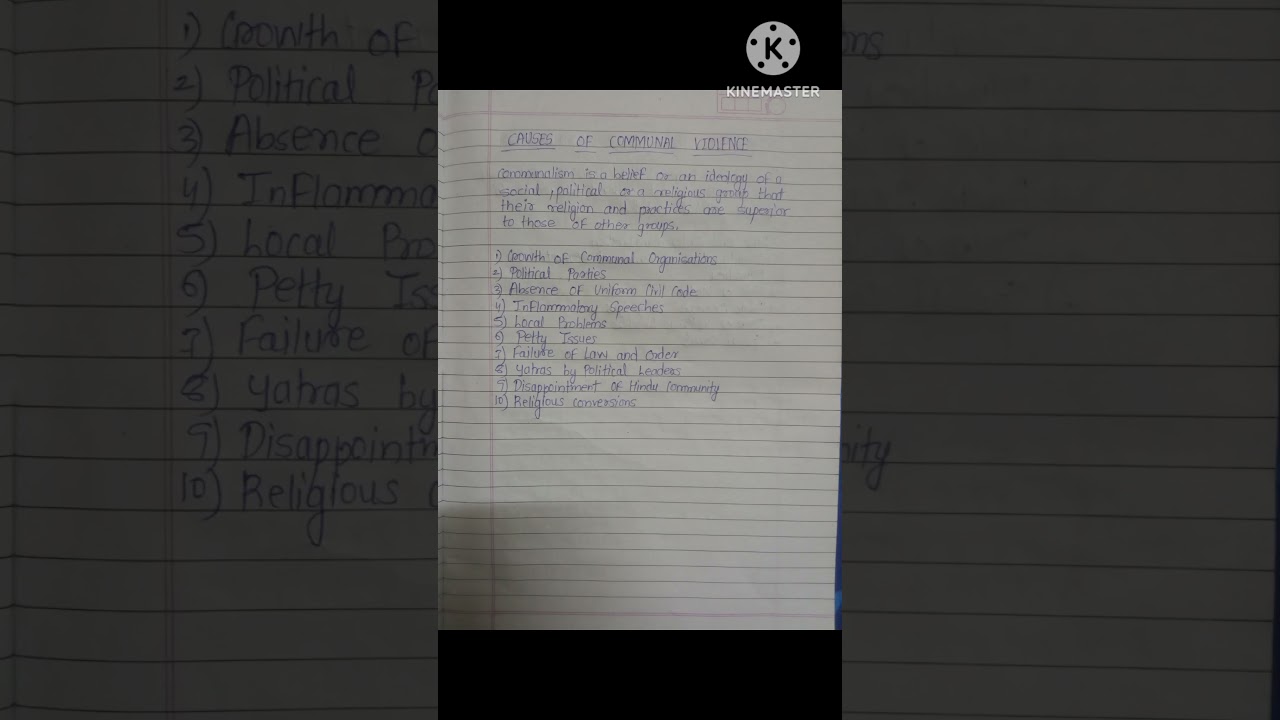 KINEMASTER
CAUSES OF COMMUNAL VIOLENCE
Communalism is a belief or an ideology of a
social, political or a religious group that
their religion and practices are superior
to those of other groups.
1) Growth of Communal Organisations
2) Political Parties
3) Absence of Uniform Civil Code
4) Inflammatory Speeches
5) Local Problems
6) Petty Issues
7) Failure of Law and Order
8) Yatras by Political Leaders
9) Disappointment of Hindu Community
10) Religious conversions
1) Growth of
2) Political
3) Absence
4) Inflamma
5) Local
6) Petty
7) Failure of
8) Yatras by
9) Disappoint
10) Religious